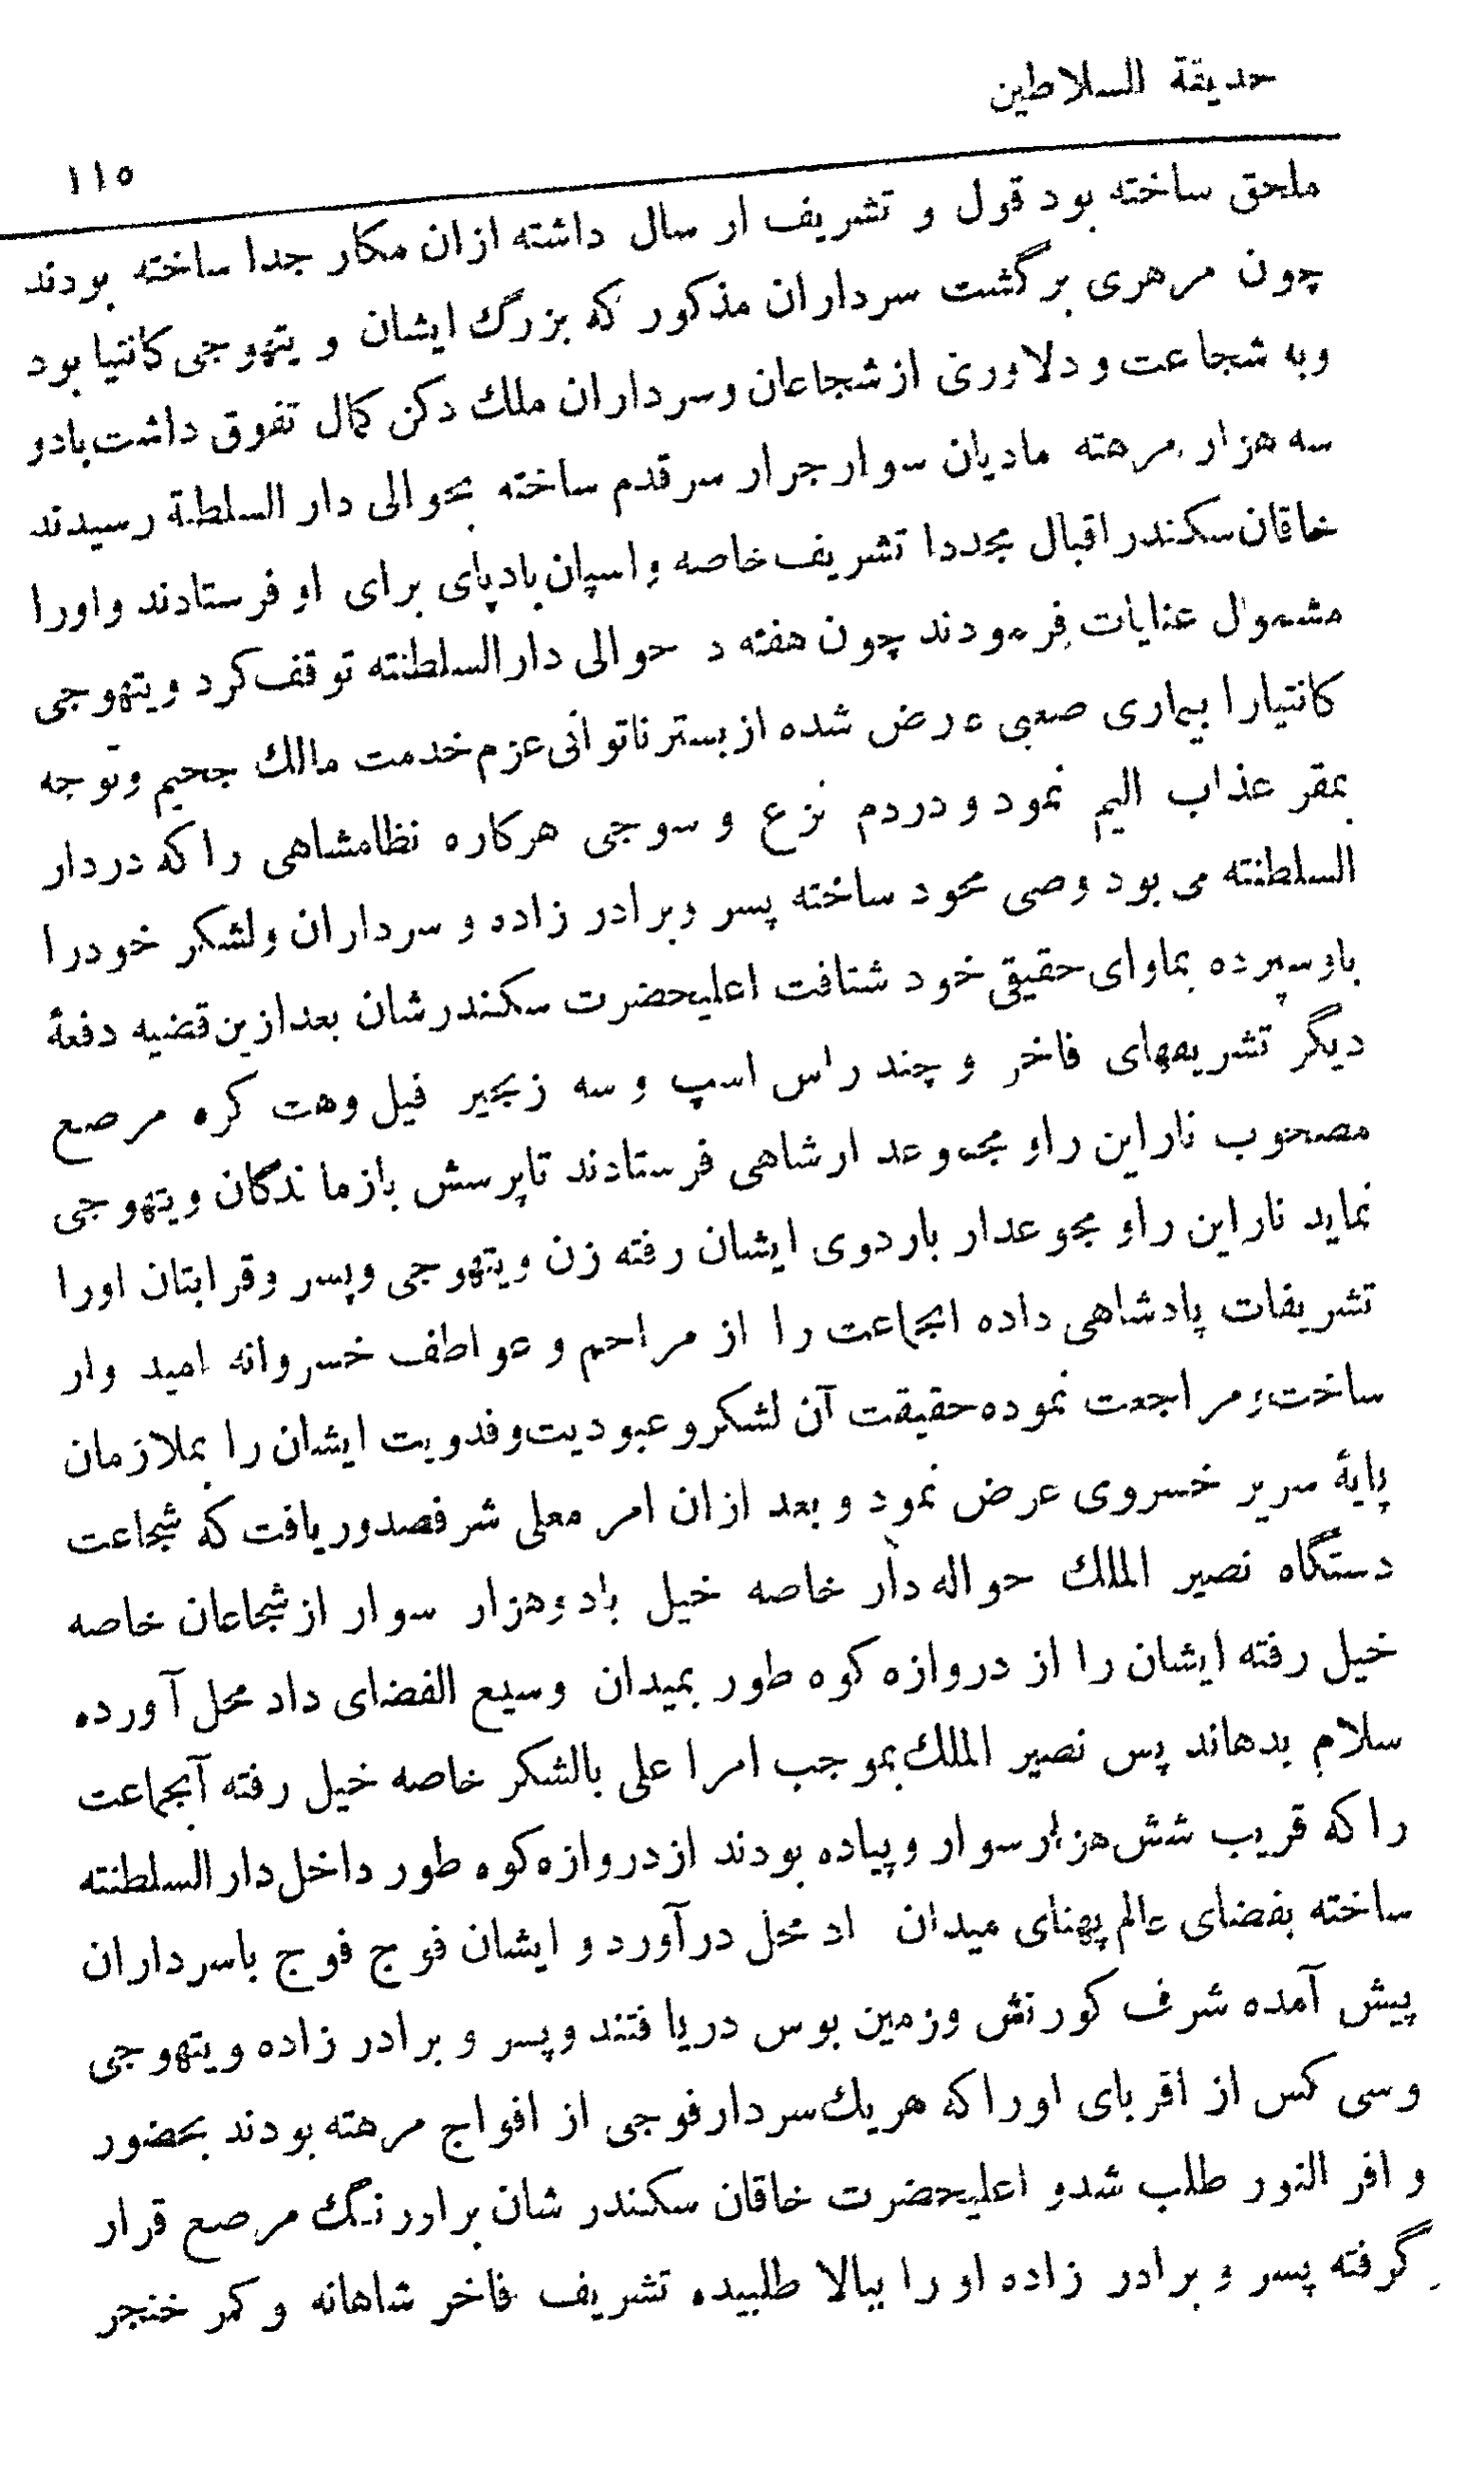 حديقة السلاطين
١١٥
ملحق ساخته بود قول و تشريف ار سال داشته ازان مكار جدا ساخته بودند
چون مرهرى برگشت سرداران مذكور كه بزرگ ايشان ويتهوجى كانتيا بود
وبه شجاعت و دلاورى ازشجاعان وسرداران ملك دكن كمال تفوق داشت بادو
سه هزار مرهته ماديان سوار جرار سرقدم ساخته بحوالى دار السلطنة رسيدند
خاقان سكندر اقبال مجددا تشريف خاصه واسپان بادپاى براى او فرستادند واورا
مشمول عنايات فرمودند چون هفته د حوالى دارالسلطنته توقف كرد ويتهوجى
كانتيارا بيمارى صعبى عرض شده ازبستر ناتوانى عزم خدمت مالك جحيم وتوجه
بمقر عذاب اليم نمود و دردم نزع و سوجى هركاره نظامشاهى را كه دردار
السلطنته مى بود وصى محود ساخته پسر وبرادر زاده و سرداران ولشكر خودرا
باو سپرده بماواى حقيقى خود شتافت اعليحضرت سكندرشان بعدازين قضيه دفعۀ
ديگر تشريفهاى فاخر و چند راس اسپ و سه زنجير فيل وهت كره مرصع
مصحوب ناراين راو مجموعد ارشاهى فرستادند تاپرسش بازماندگان ويتهوجى
نمايد ناراين راو مجوعدار باردوى ايشان رفته زن ويتهوجى وپسر وقرابتان اورا
تشريفات پادشاهى داده انجماعت را از مراحم و عواطف خسروانه اميد وار
ساخت و مراجعت نموده حقيقت آن لشكر و عبوديت و فدويت ايشان را بملازمان
پايۀ سرير خسروى عرض نمود و بعد ازان امر معلى شرفصدور يافت كه شجاعت
دستگاه نصير الملك حواله دار خاصه خيل بادوهزار سوار ازشجاعان خاصه
خيل رفته ايشان را از دروازه كوه طور بميدان وسيع الفضاى داد محل آورده
سلام بدهاند پس نصير الملك بموجب امرا على بالشكر خاصه خيل رفته آنجماعت
را كه قريب شش هزار سوار وپياده بودند ازدروازه كوه طور داخل دار السلطنته
ساخته بفضاى عالم پهناى ميدان اد محل درآورد و ايشان فوج فوج باسرداران
پيش آمده شرف كورنش وزمين بوس دريا فتند وپسر و برادر زاده ويتهوجى
وسى كس از اقرباى اورا كه هريك سردار فوجى از افواج مرهته بودند بحضور
و افر النور طلب شدو اعليحضرت خاقان سكندر شان براورنگ مرصع قرار
گرفته پسر و برادر زاده او را ببالا طلبيده تشريف فاخر شاهانه و كمر خنجر